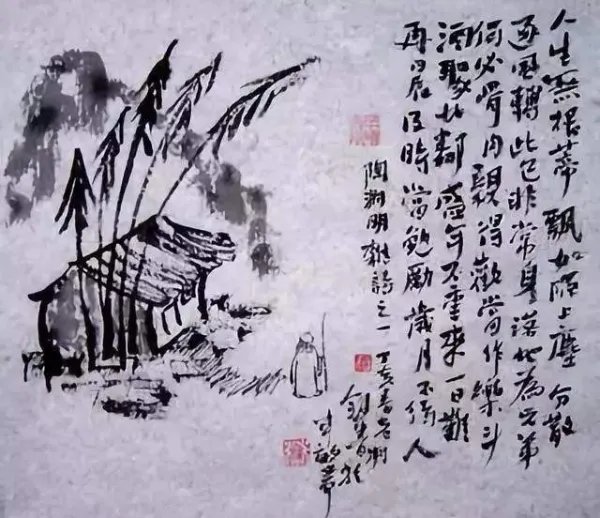 人生無根蒂飄如陌上塵分散
逐風轉此已非常身落地為兄弟
何必骨肉親得歡當作樂斗
酒聚比鄰盛年不重來一日難
再晨及時當勉勵歲月不待人
陶渊明雜詩之一
丁亥春